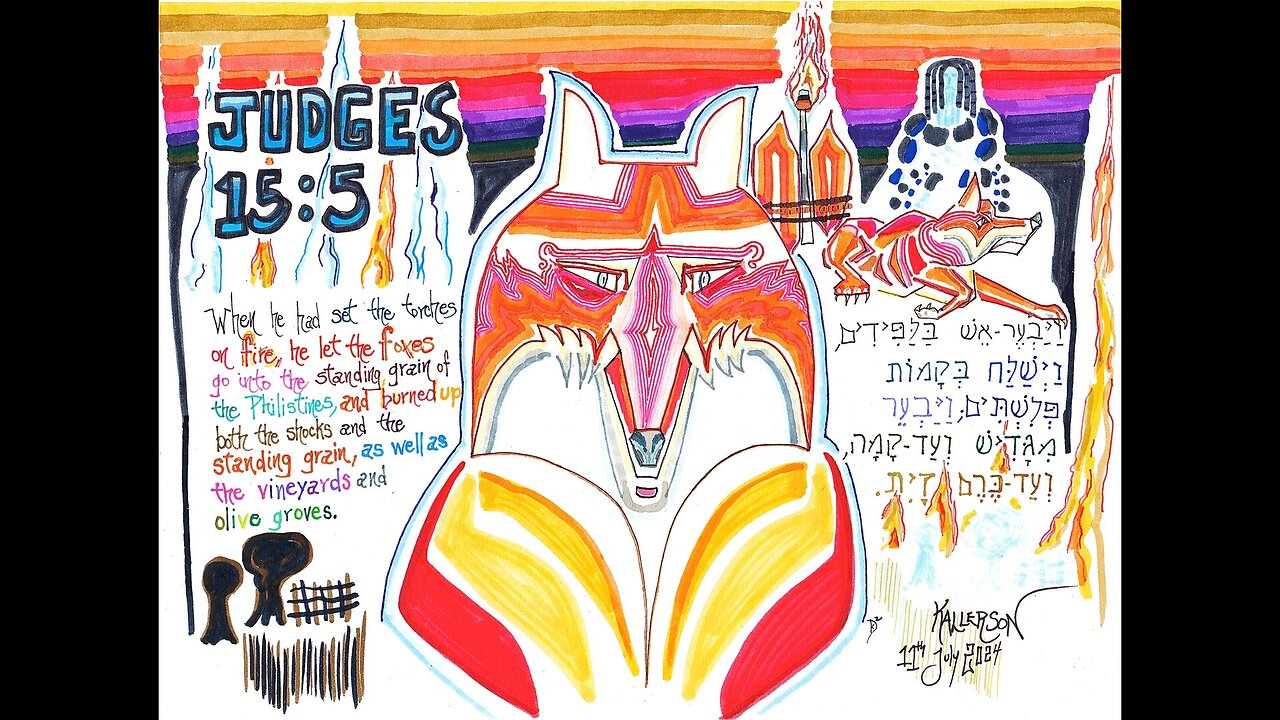 JUDGES
15:5
When he had set the torches
on fire, he let the foxes
go into the standing grain of
the Philistines, and burned up
both the shocks and the
standing grain, as well as
the vineyards and
olive groves.
וַיַּבְעֶר-אֵשׁ בַּלַּפִּידִים,
וַיְשַׁלַּח בְּקָמוֹת
פְּלִשְׁתִּים; וַיַּבְעֵר
מִגָּדִישׁ וְעַד-קָמָה,
וְעַד-כֶּרֶם זָיִת.
KALLERSON
11th July 2024